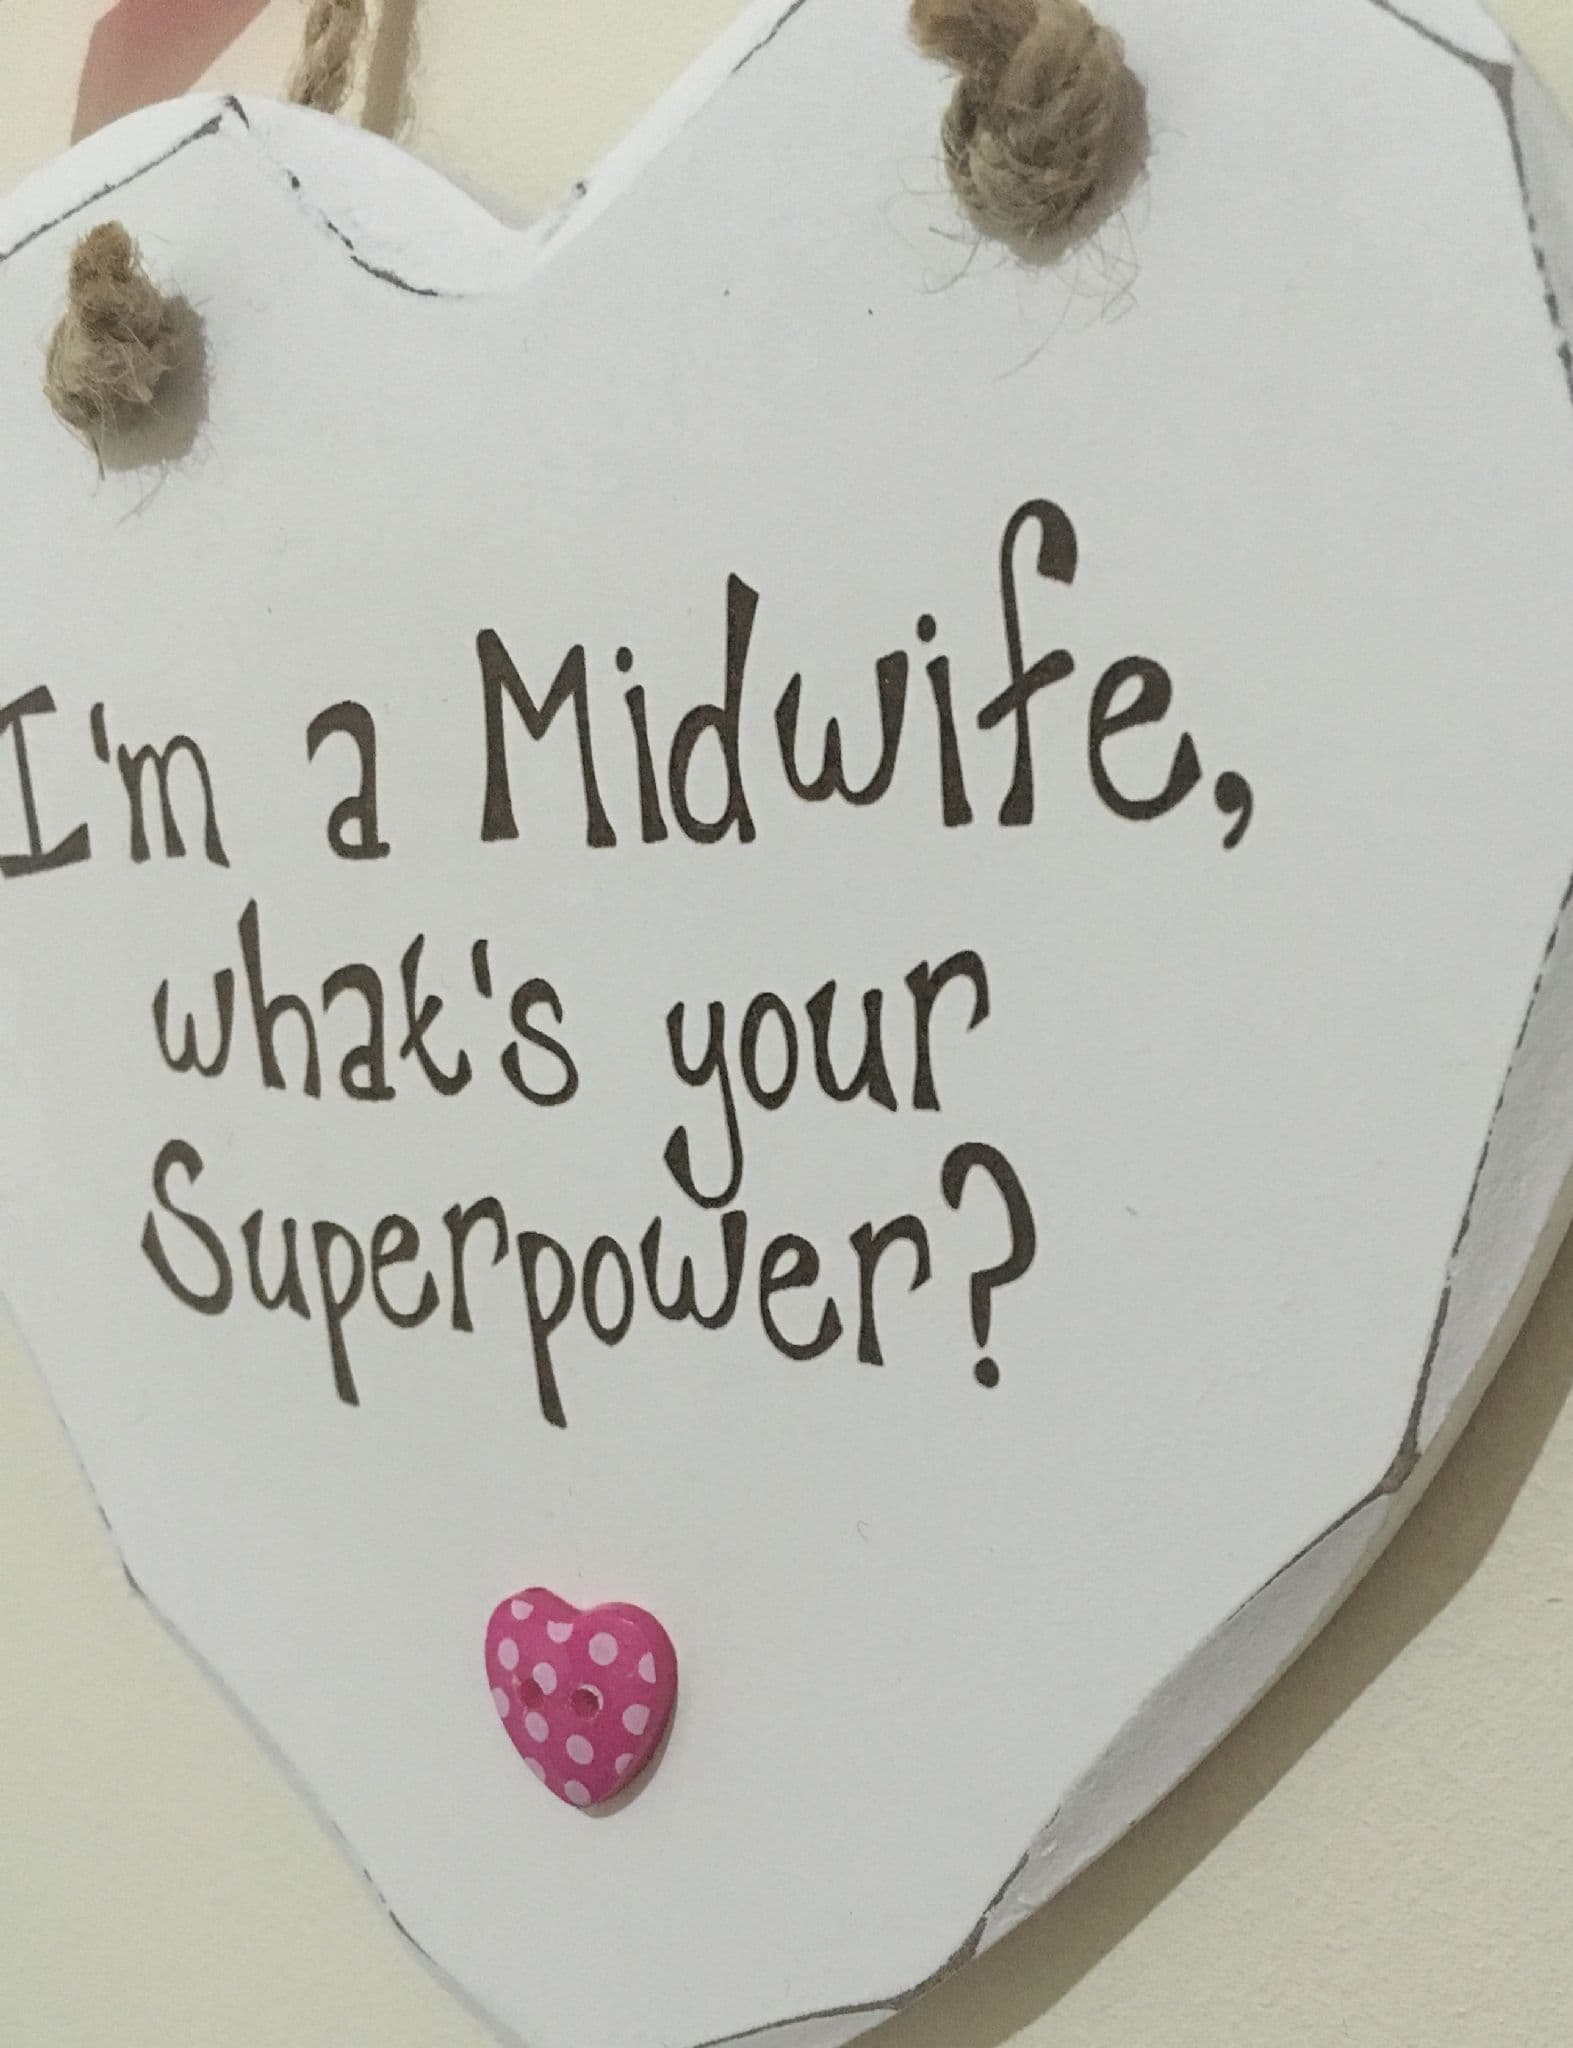 I'm a Midwife,
what's your
Superpower?